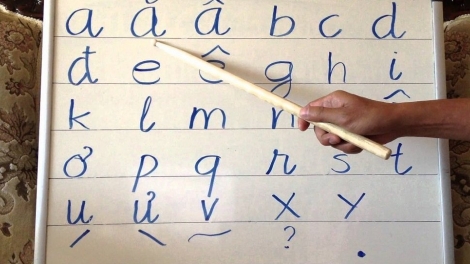 a ă â b c d
đ e ê g h i
k l m n
ơ p q r s t
u ư v x y
/ \ ~ ? .